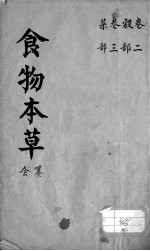 卷二
穀部
卷三
菜部
食物本草
會纂